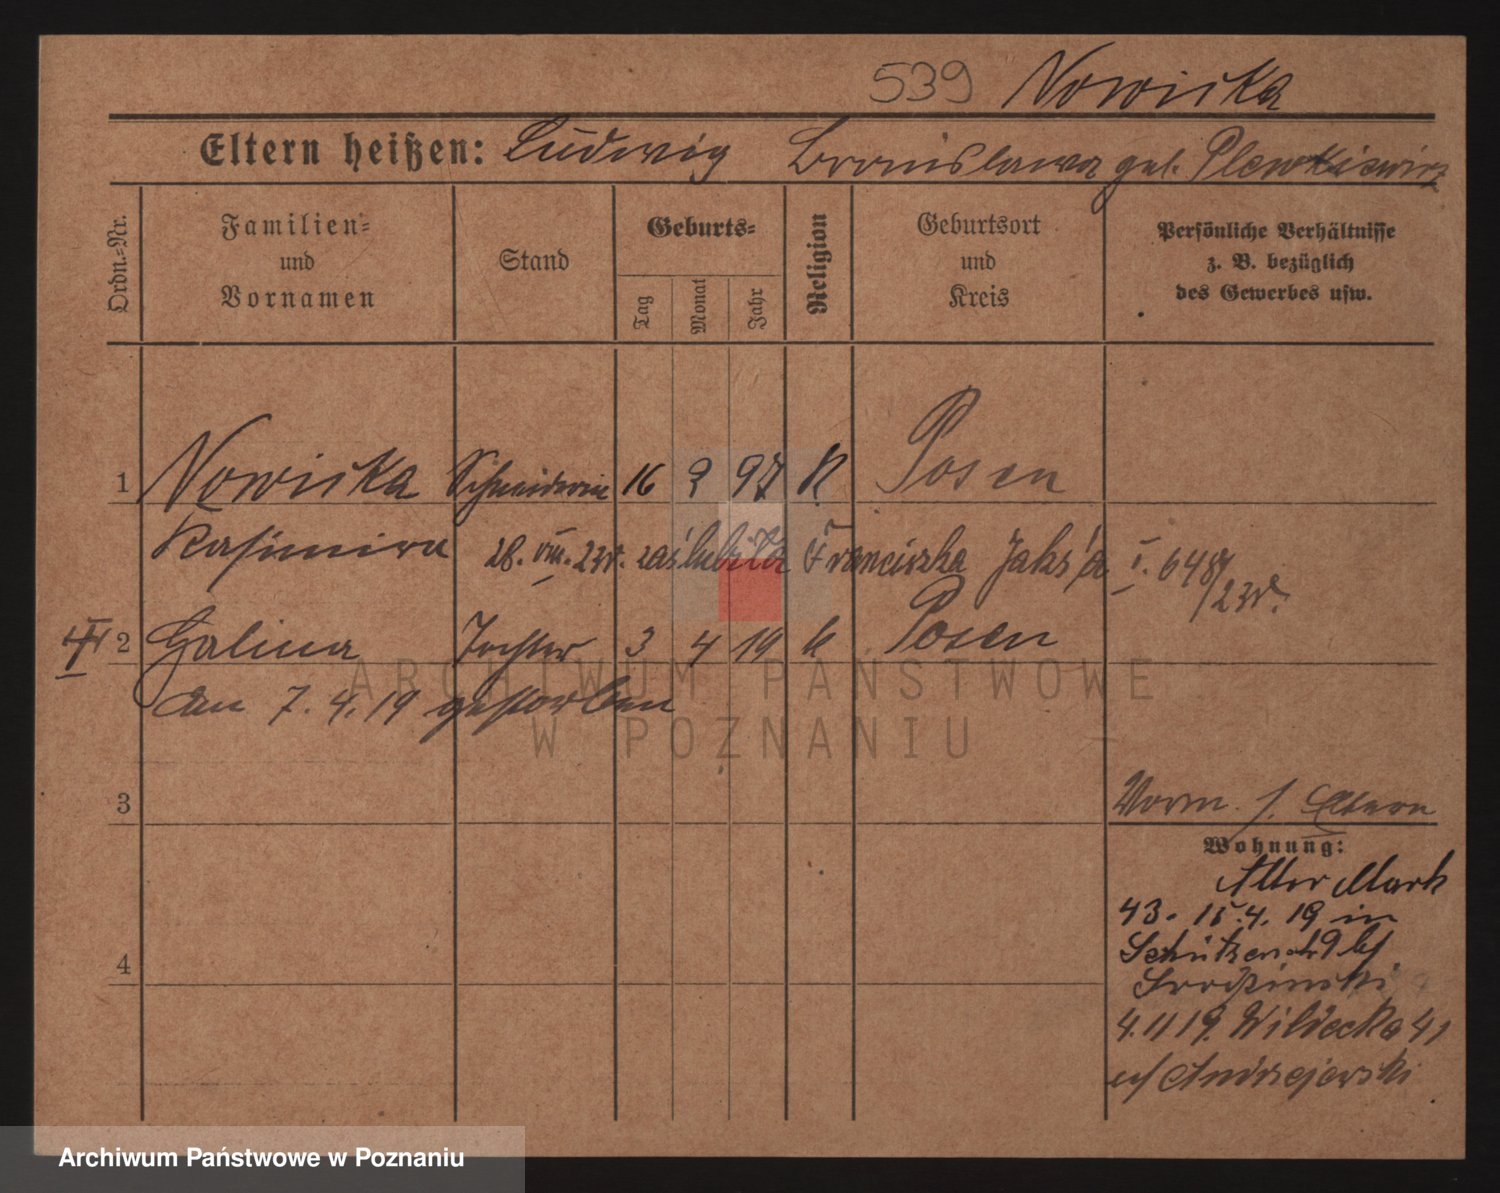 539 Nowicka
Eltern heißen: Ludwig Bronislawa geb. Plewkiewicz
Ordn.=Nr.
Familien=
und
Vornamen
Stand
Geburts=
Tag
Monat
Jahr
Religion
Geburtsort
und
Kreis
Persönliche Verhältnisse
z. B. bezüglich
des Gewerbes usw.
1 Nowicka Schneiderin 16 2 97 K Posen
Kasimira 28. VIII. 23r. zaślubiła Franciszka Jakś'a I. 648/23r.
2 Halina Tochter 3 4 19 k Posen
am 7. 4. 19 gestorben
3
Vorm. s. Eltern
Wohnung:
Alter Mark
43. 15.4. 19 in
19 b/
4
4.11 19. Wildecka 41
b/ Andrzejewski
ARCHIWUM PAŃSTWOWE
W POZNANIU
Archiwum Państwowe w Poznaniu